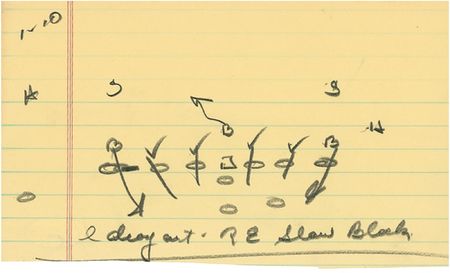 1-10
S S
H
H
B
B B
l drag out. R E Slow Block.